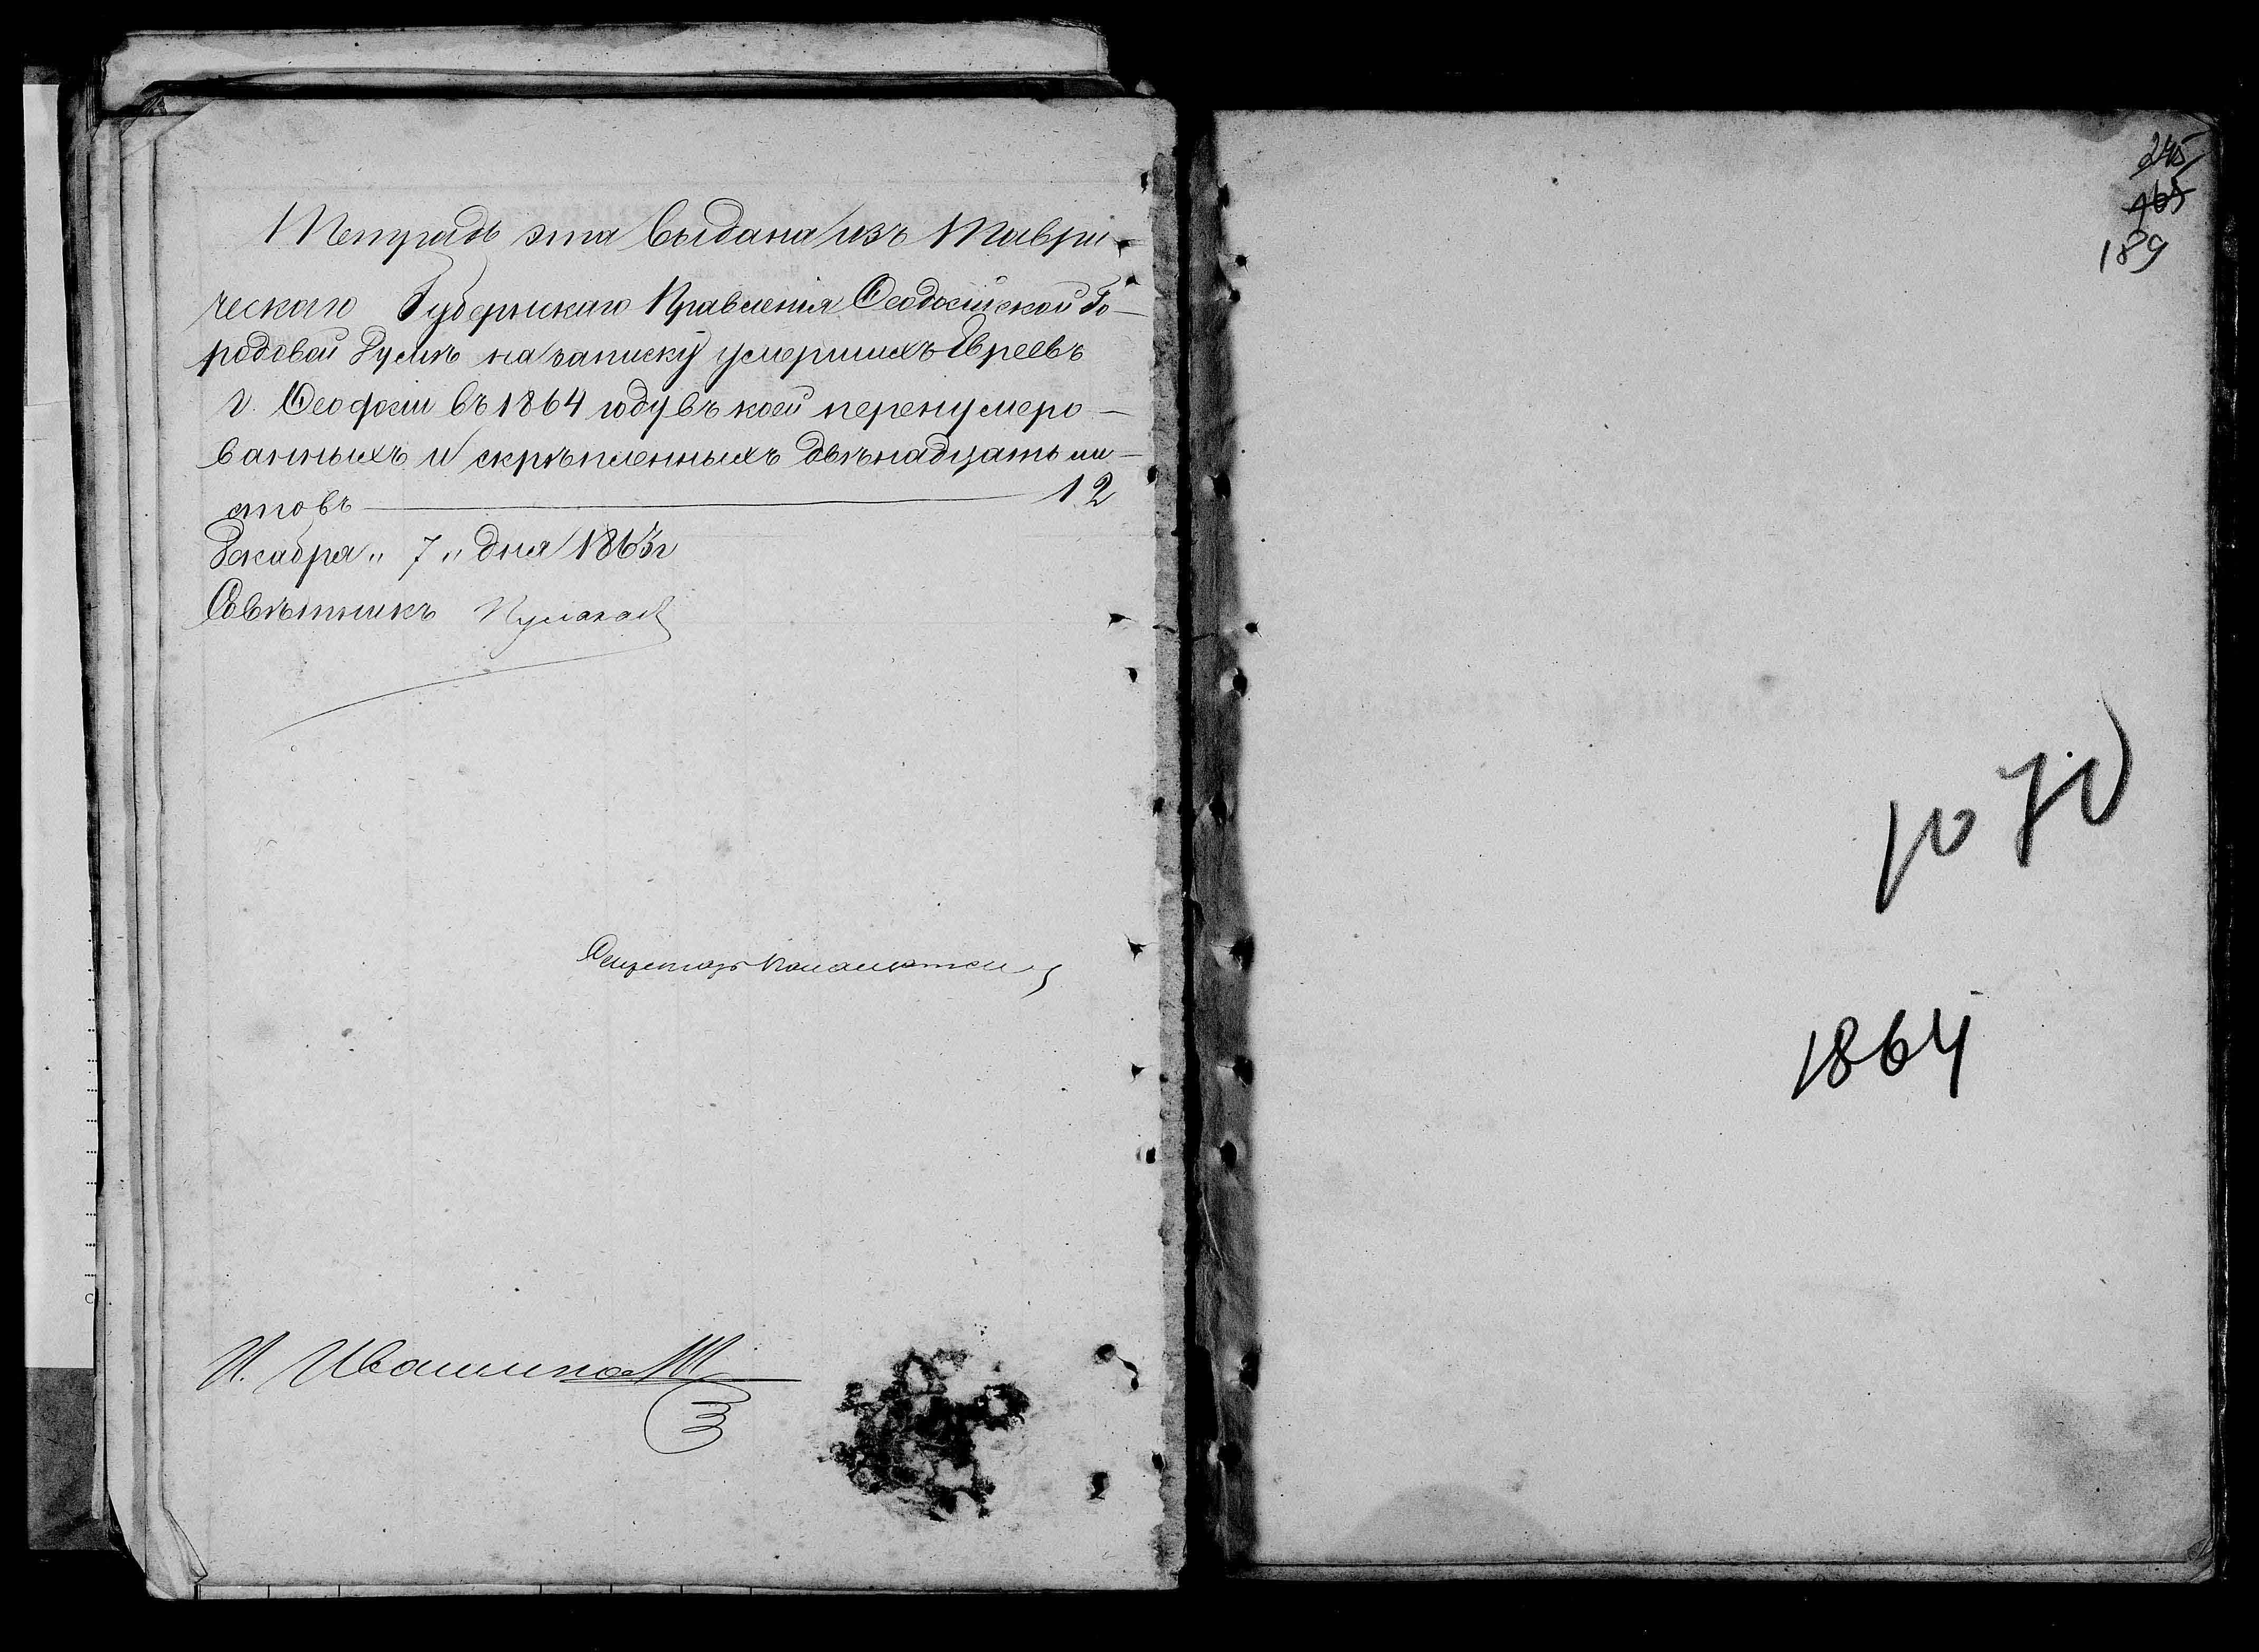 Тетрадь эта выдана изъ Таври-
ческаго Губернскаго Правленія Ѳеодосійской Го-
родовой Думѣ на записку умершихъ Евреевъ
г. Ѳеодосіи въ 1864 году въ коей перенумеро-
ванныхъ и скрѣпленныхъ двѣнадцать ли-
стовъ — 12
Декабря „ 7 „ дня 1863 г
Совѣтникъ
Секретарь
И.
245
165
189
1864